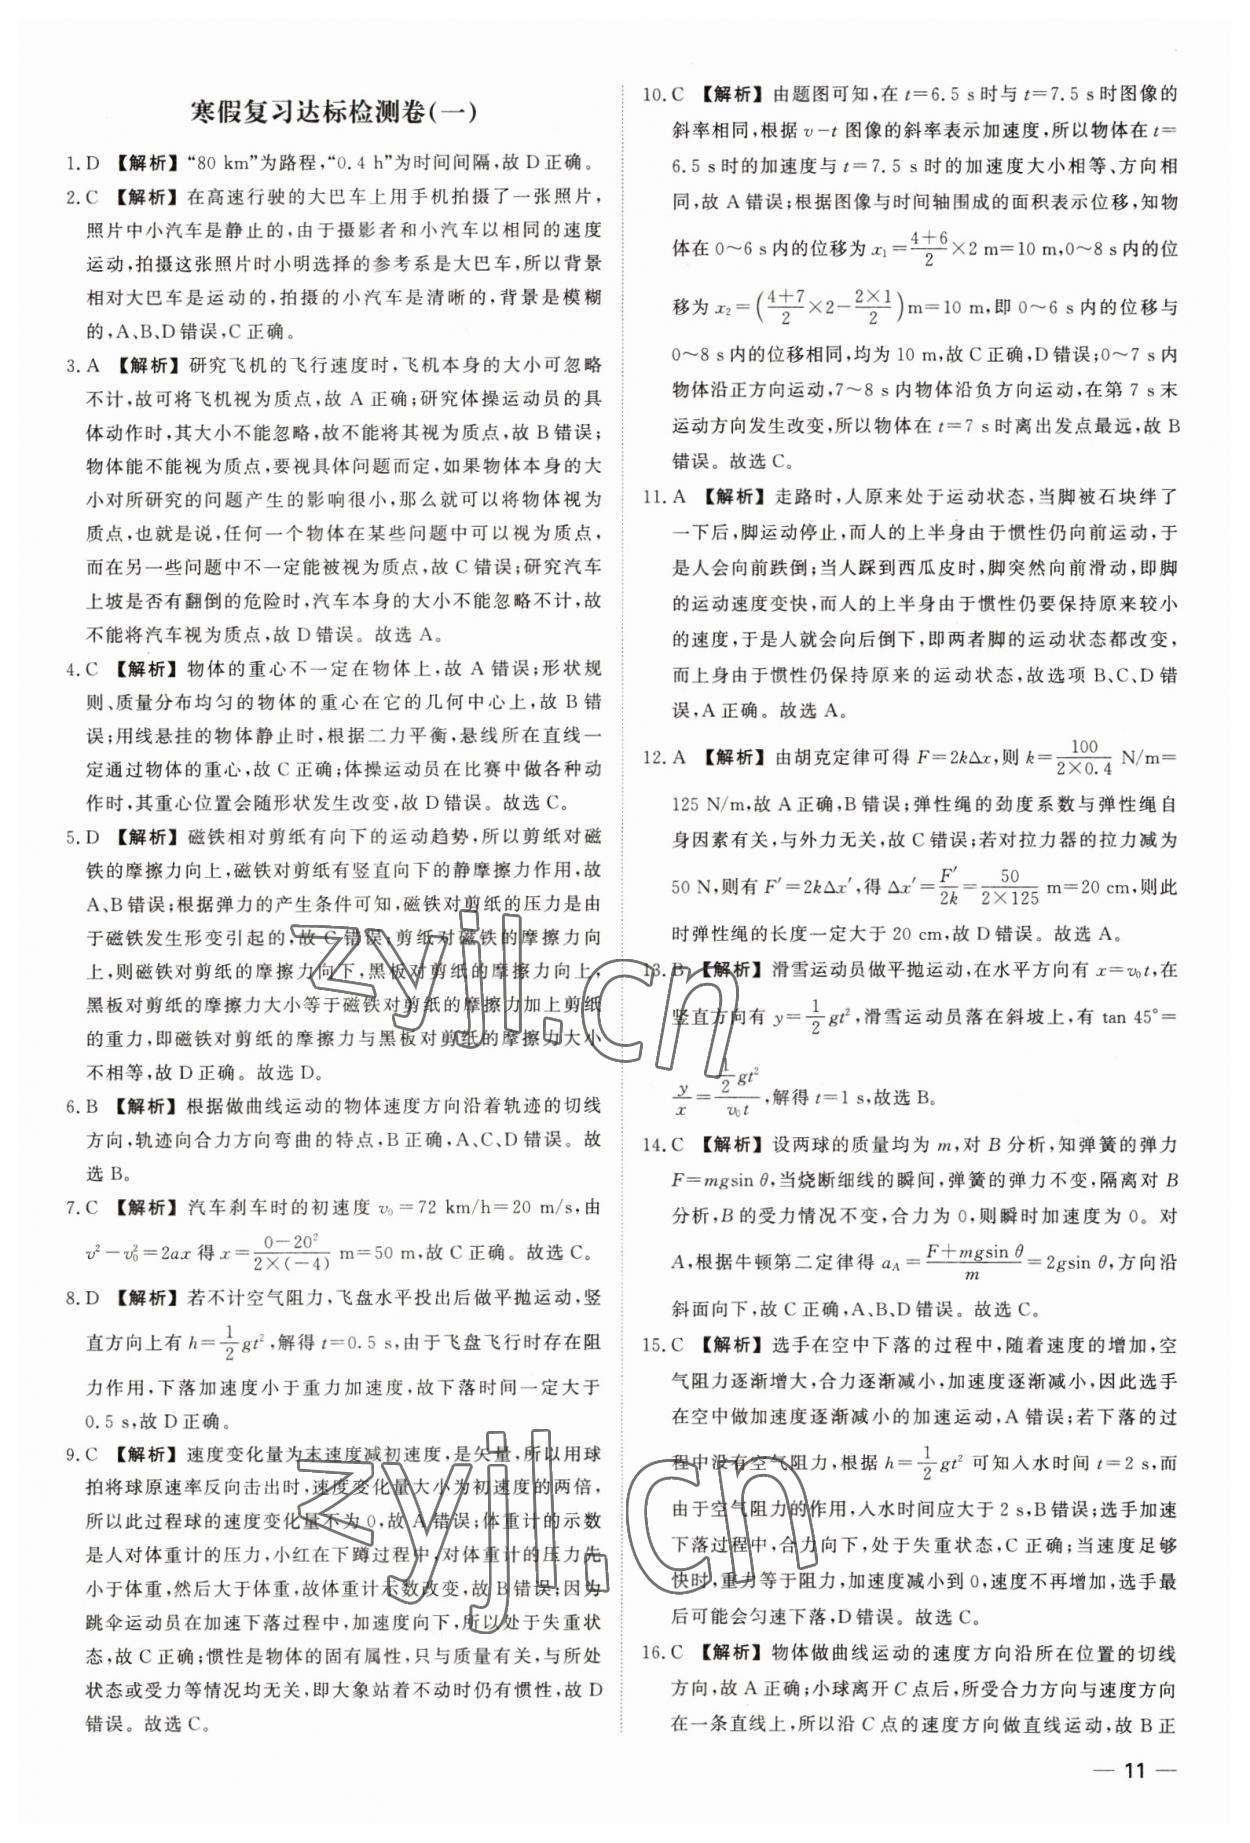 寒假复习达标检测卷(一)
1. D 【解析】“80 km”为路程,“0.4 h”为时间间隔,故 D正确。
2. C 【解析】在高速行驶的大巴车上用手机拍摄了一张照片,
照片中小汽车是静止的,由于摄影者和小汽车以相同的速度
运动,拍摄这张照片时小明选择的参考系是大巴车,所以背景
相对大巴车是运动的,拍摄的小汽车是清晰的,背景是模糊
的,A、B、D错误,C正确。
3. A 【解析】研究飞机的飞行速度时,飞机本身的大小可忽略
不计,故可将飞机视为质点,故 A正确;研究体操运动员的具
体动作时,其大小不能忽略,故不能将其视为质点,故 B错误;
物体能不能视为质点,要视具体问题而定,如果物体本身的大
小对所研究的问题产生的影响很小,那么就可以将物体视为
质点,也就是说,任何一个物体在某些问题中可以视为质点,
而在另一些问题中不一定能被视为质点,故 C错误;研究汽车
上坡是否有翻倒的危险时,汽车本身的大小不能忽略不计,故
不能将汽车视为质点,故 D错误。故选 A。
4. C 【解析】物体的重心不一定在物体上,故 A错误;形状规
则、质量分布均匀的物体的重心在它的几何中心上,故 B错
误;用线悬挂的物体静止时,根据二力平衡,悬线所在直线一
定通过物体的重心,故 C正确;体操运动员在比赛中做各种动
作时,其重心位置会随形状发生改变,故 D错误。故选 C。
5. D 【解析】磁铁相对剪纸有向下的运动趋势,所以剪纸对磁
铁的摩擦力向上,磁铁对剪纸有竖直向下的静摩擦力作用,故
A、B错误;根据弹力的产生条件可知,磁铁对剪纸的压力是由
于磁铁发生形变引起的,故 C错误;剪纸对磁铁的摩擦力向
上,则磁铁对剪纸的摩擦力向下,黑板对剪纸的摩擦力向上,
黑板对剪纸的摩擦力大小等于磁铁对剪纸的摩擦力加上剪纸
的重力,即磁铁对剪纸的摩擦力与黑板对剪纸的摩擦力大小
不相等,故 D正确。故选 D。
6. B 【解析】根据做曲线运动的物体速度方向沿着轨迹的切线
方向,轨迹向合力方向弯曲的特点,B正确,A、C、D错误。故
选 B。
7. C 【解析】汽车刹车时的初速度 v₀=72 km/h=20 m/s,由
v²−v₀²=2ax 得 x=(0−20²)/(2×(−4)) m=50 m,故 C正确。故选 C。
8. D 【解析】若不计空气阻力,飞盘水平投出后做平抛运动,竖
直方向上有 h=1/2 gt²,解得 t=0.5 s,由于飞盘飞行时存在阻
力作用,下落加速度小于重力加速度,故下落时间一定大于
0.5 s,故 D正确。
9. C 【解析】速度变化量为末速度减初速度,是矢量,所以用球
拍将球原速率反向击出时,速度变化量大小为初速度的两倍,
所以此过程球的速度变化量不为 0,故 A错误;体重计的示数
是人对体重计的压力,小红在下蹲过程中,对体重计的压力先
小于体重,然后大于体重,故体重计示数改变,故 B错误;因为
跳伞运动员在加速下落过程中,加速度向下,所以处于失重状
态,故 C正确;惯性是物体的固有属性,只与质量有关,与所处
状态或受力等情况均无关,即大象站着不动时仍有惯性,故 D
错误。故选 C。
10. C 【解析】由题图可知,在 t=6.5 s时与 t=7.5 s时图像的
斜率相同,根据 v−t 图像的斜率表示加速度,所以物体在 t=
6.5 s时的加速度与 t=7.5 s时的加速度大小相等、方向相
同,故 A错误;根据图像与时间轴围成的面积表示位移,知物
体在 0~6 s内的位移为 x₁=(4+6)/2×2 m=10 m,0~8 s内的位
移为 x₂=((4+7)/2×2−(2×1)/2)m=10 m,即 0~6 s内的位移与
0~8 s内的位移相同,均为 10 m,故 C正确,D错误;0~7 s内
物体沿正方向运动,7~8 s内物体沿负方向运动,在第 7 s末
运动方向发生改变,所以物体在 t=7 s时离出发点最远,故 B
错误。故选 C。
11. A 【解析】走路时,人原来处于运动状态,当脚被石块绊了
一下后,脚运动停止,而人的上半身由于惯性仍向前运动,于
是人会向前跌倒;当人踩到西瓜皮时,脚突然向前滑动,即脚
的运动速度变快,而人的上半身由于惯性仍要保持原来较小
的速度,于是人就会向后倒下,即两者脚的运动状态都改变,
而上身由于惯性仍保持原来的运动状态,故选项 B、C、D错
误,A正确。故选 A。
12. A 【解析】由胡克定律可得 F=2kΔx,则 k=100/(2×0.4) N/m=
125 N/m,故 A正确,B错误;弹性绳的劲度系数与弹性绳自
身因素有关,与外力无关,故 C错误;若对拉力器的拉力减为
50 N,则有 F′=2kΔx′,得 Δx′=F′/2k=50/(2×125) m=20 cm,则此
时弹性绳的长度一定大于 20 cm,故 D错误。故选 A。
13. B 【解析】滑雪运动员做平抛运动,在水平方向有 x=v₀t,在
竖直方向有 y=1/2 gt²,滑雪运动员落在斜坡上,有 tan 45°=
y/x=(1/2 gt²)/(v₀t),解得 t=1 s,故选 B。
14. C 【解析】设两球的质量均为 m,对 B 分析,知弹簧的弹力
F=mgsin θ,当烧断细线的瞬间,弹簧的弹力不变,隔离对 B
分析,B 的受力情况不变,合力为 0,则瞬时加速度为 0。对
A,根据牛顿第二定律得 a_A=(F+mgsin θ)/m=2gsin θ,方向沿
斜面向下,故 C正确,A、B、D错误。故选 C。
15. C 【解析】选手在空中下落的过程中,随着速度的增加,空
气阻力逐渐增大,合力逐渐减小,加速度逐渐减小,因此选手
在空中做加速度逐渐减小的加速运动,A错误;若下落的过
程中没有空气阻力,根据 h=1/2 gt² 可知入水时间 t=2 s,而
由于空气阻力的作用,入水时间应大于 2 s,B错误;选手加速
下落过程中,合力向下,处于失重状态,C正确;当速度足够
快时,重力等于阻力,加速度减小到 0,速度不再增加,选手最
后可能会匀速下落,D错误。故选 C。
16. C 【解析】物体做曲线运动的速度方向沿所在位置的切线
方向,故 A正确;小球离开 C 点后,所受合力方向与速度方向
在一条直线上,所以沿 C 点的速度方向做直线运动,故 B正
— 11 —
zyjl.cn
zyjl.cn